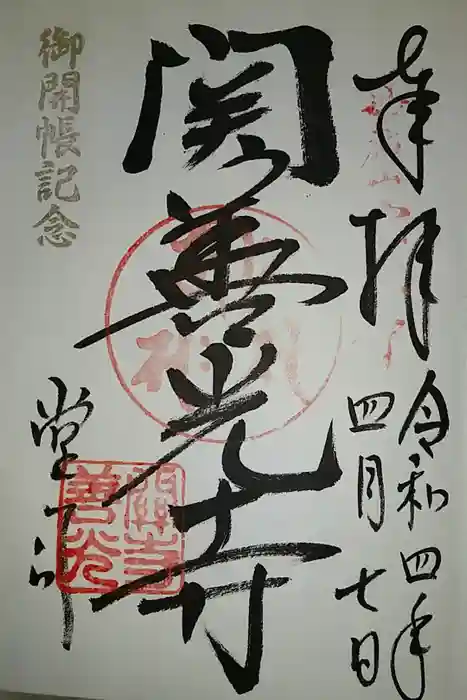 奉拝
令和四年
四月七日
関善光寺
御開帳記念
關善光寺